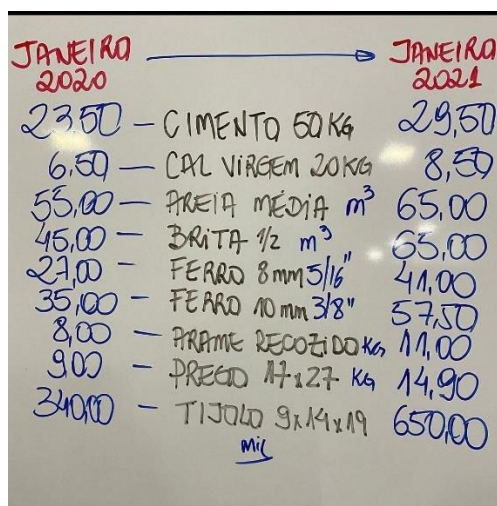 JANEIRO 2020 → JANEIRO 2021
23,50 — CIMENTO 50 KG 29,50
6,50 — CAL VIRGEM 20KG 8,50
55,00 — AREIA MÉDIA m³ 65,00
45,00 — BRITA 1/2 m³ 65,00
27,00 — FERRO 8mm 5/16" 41,00
35,00 — FERRO 10mm 3/8" 57,50
8,00 — ARAME RECOZIDO KG 11,00
9,00 — PREGO 17x27 KG 14,90
340,00 — TIJOLO 9x14x19 650,00
Mil